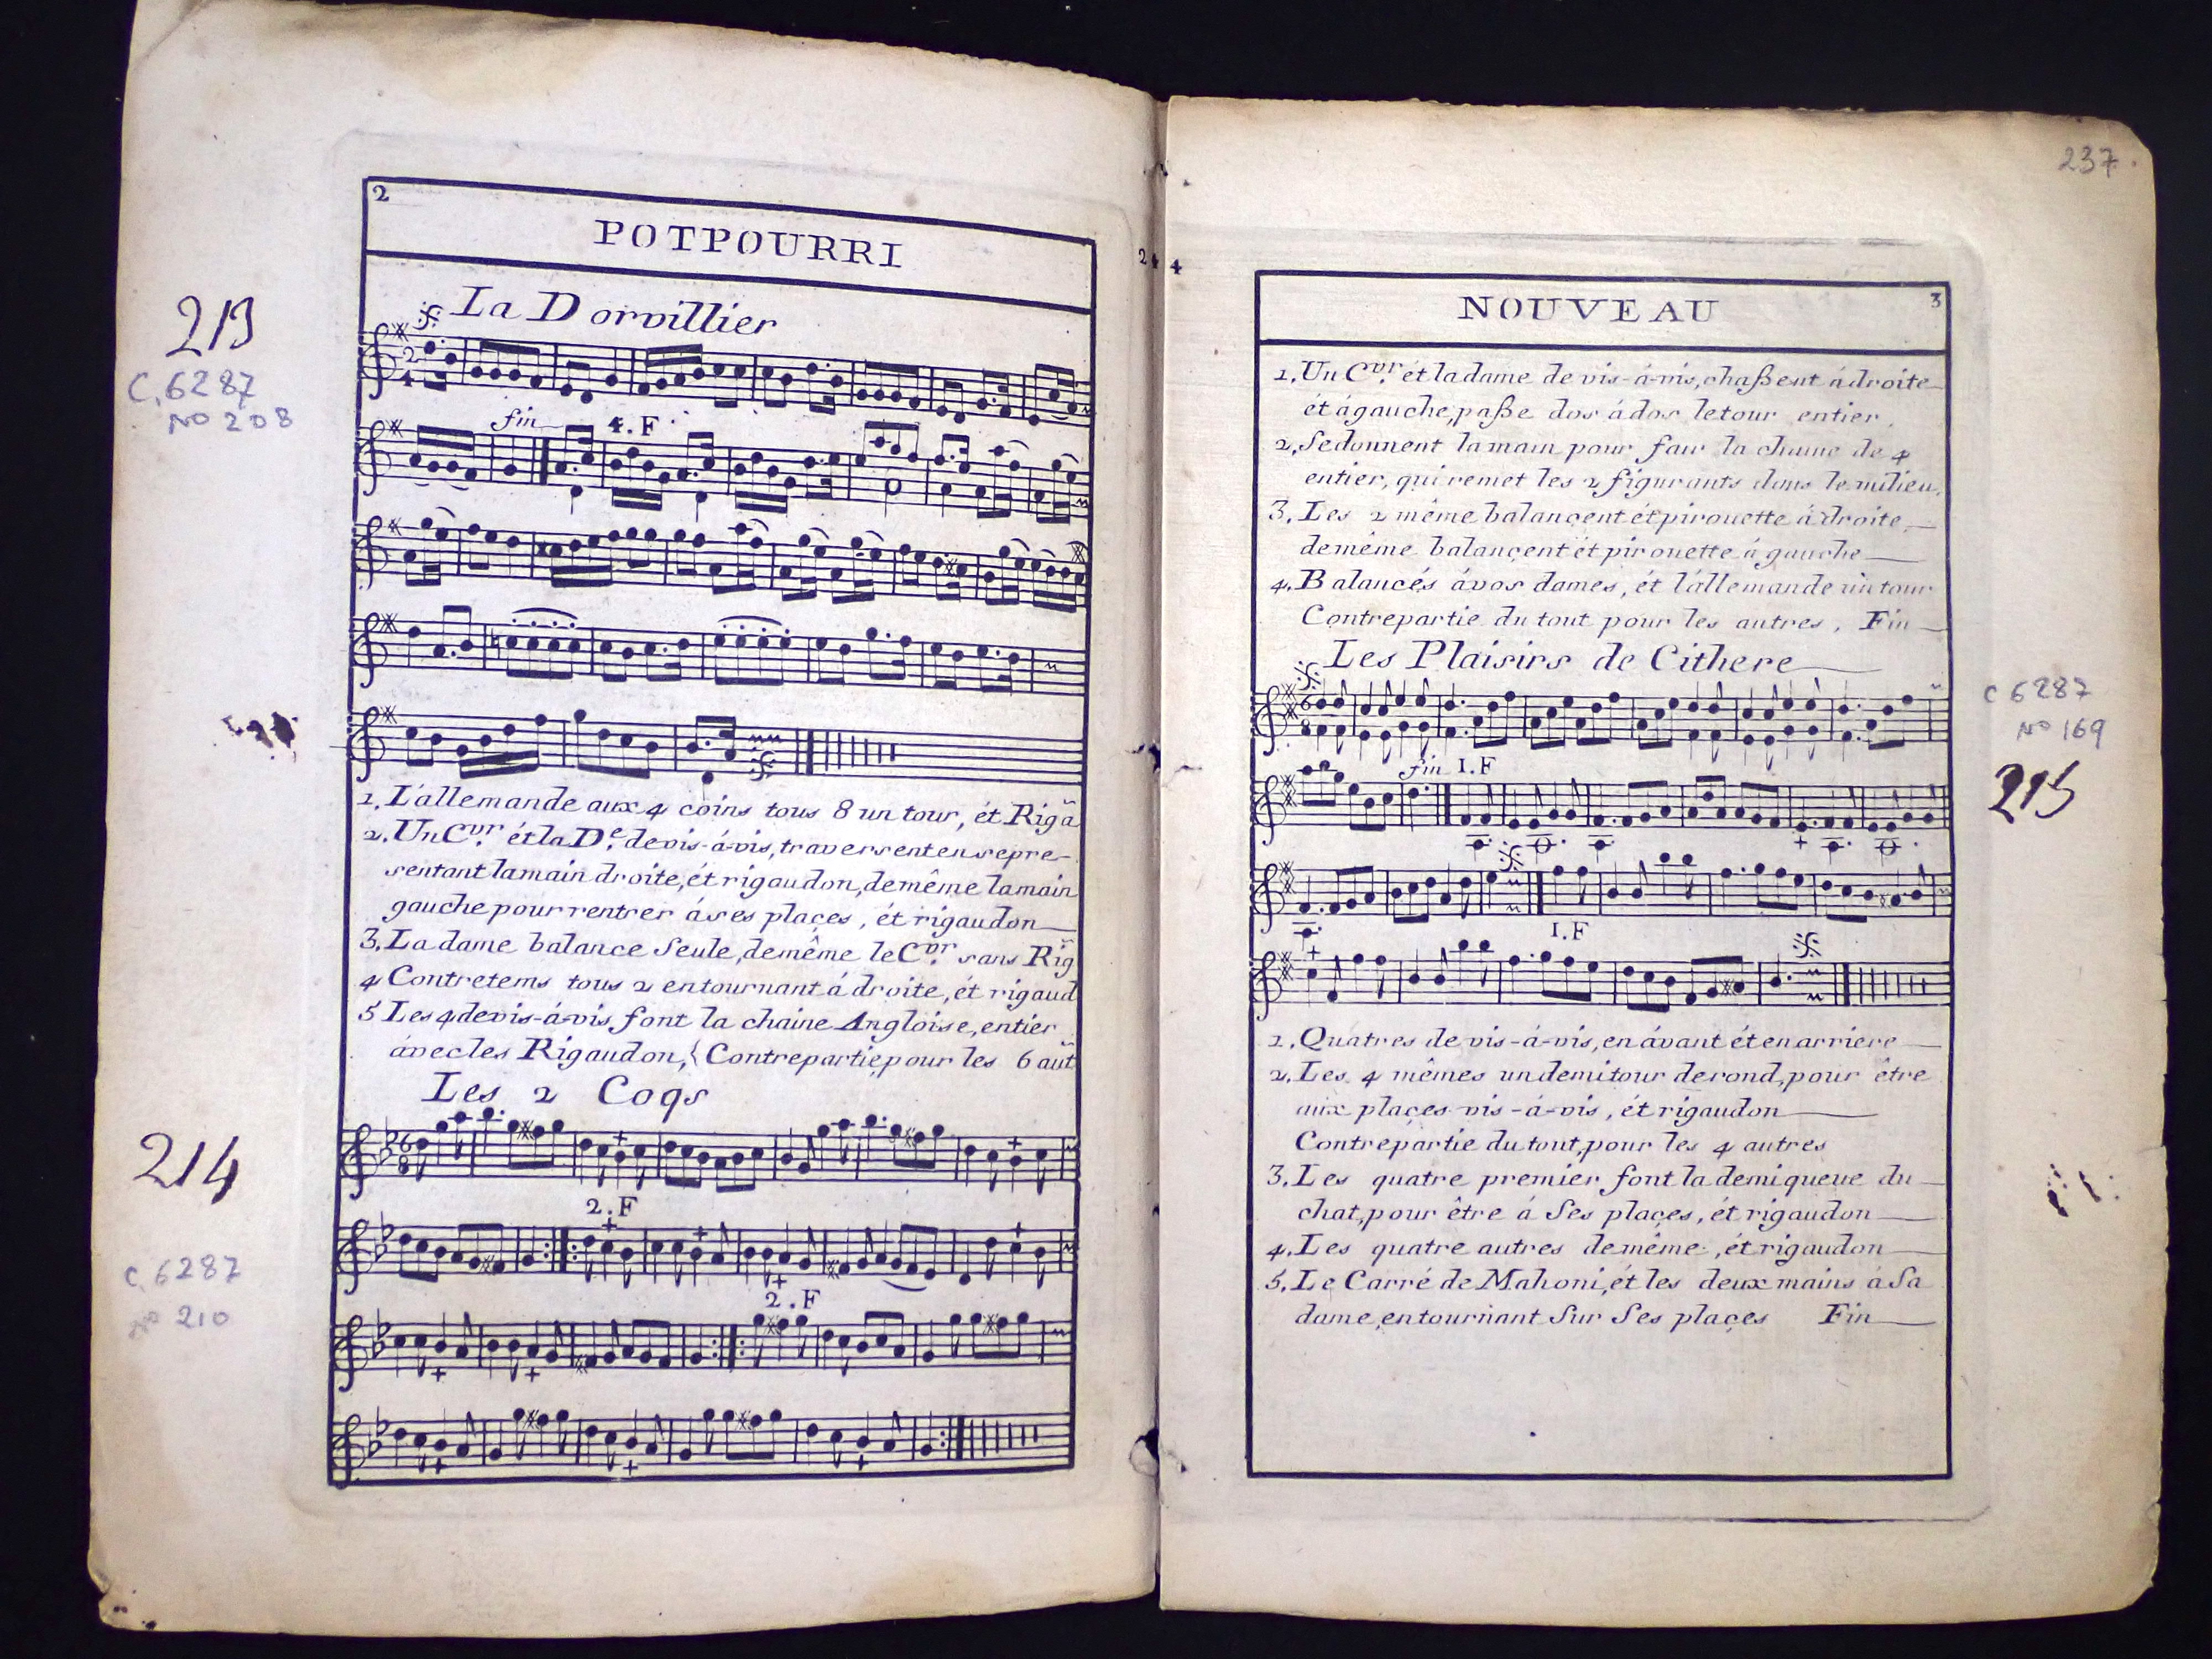 2
POTPOURRI
213
C. 6287
No 208
La Dorvillier
2
4
fin
4. F
1. L'allemande aux 4 coins tous 8 un tour, ét Rigã
2. Un Cvr. ét la De. de vis-á-vis, traversent en se pre-
sentant la main droite, ét rigaudon, de même la main
gauche pour rentrer á ses plaçes, ét rigaudon
3. La dame balance Seule, de même le Cvr. sans Rig
4 Contretems tous 2 en tournant á droite, ét rigaud
5 Les 4 de vis-á-vis font la chaine Angloise, entier
ávec les Rigaudon, { Contrepartie, pour les 6 aut
Les 2 Coqs
214
C. 6287
No 210
6
8
2. F
2. F
237.
24
4
NOUVEAU
3
1. Un Cvr. ét la dame de vis-á-vis, chaßent á droite
ét á gauche, paße dos á dos le tour entier.
2, Se donnent la main pour fair la chaine de 4
entier, qui remet les 2 figurants dans le milieu.
3. Les 2 même balançent ét pirouette á droite,
de même balançent ét pirouette á gauche
4. Balancés á vos dames, ét l'állemande un tour
Contrepartie du tout pour les autres, Fin
Les Plaisirs de Cithere
C 6287
No 169
215
6
8
fin 1. F
1. F
1. Quatres de vis-á-vis, en ávant ét en arriere
2. Les 4 mêmes un demi tour de rond, pour être
aux plaçes vis-á-vis, ét rigaudon
Contrepartie du tout, pour les 4 autres
3. Les quatre premier font la demi queue du
chat, pour être á Ses plaçes, ét rigaudon
4. Les quatre autres de même, ét rigaudon
5. Le Carré de Mahoni, ét les deux mains á Sa
dame, en tournant Sur Ses plaçes Fin